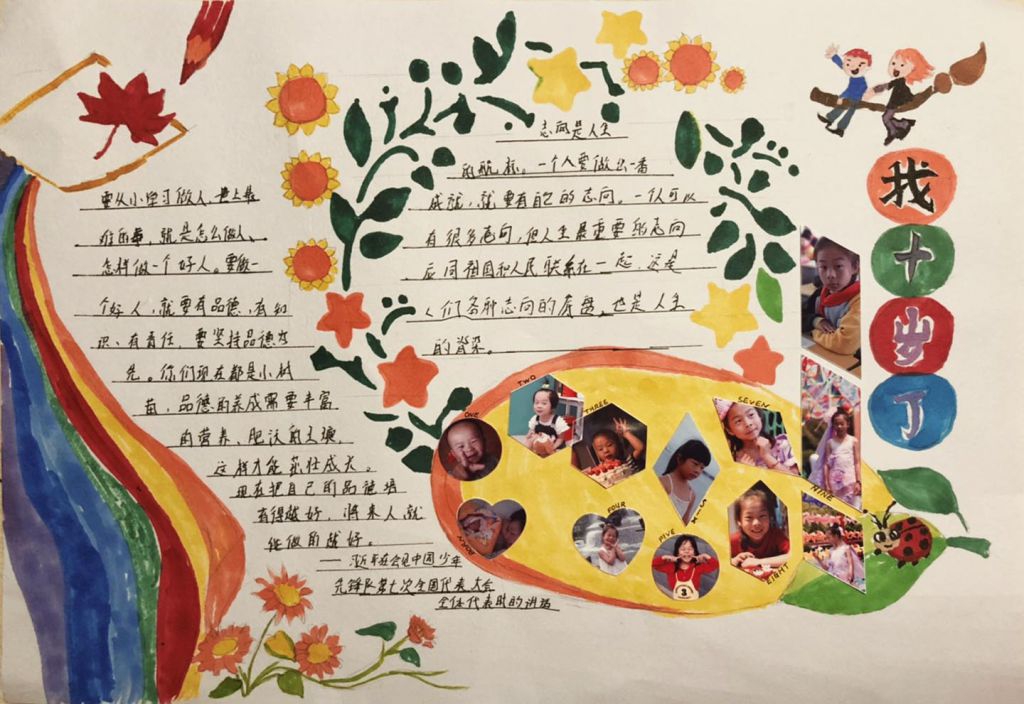 要从小学习做人。世上最
难的事，就是怎么做人、
怎样做一个好人。要做一
个好人，就要有品德、有知
识、有责任，要坚持品德为
先。你们现在都是小树
苗，品德的养成需要丰富
的营养、肥沃的土壤，
这样才能茁壮成长。
现在把自己的品德培
育得越好，将来人就
能做的越好。
——习近平在会见中国少年
先锋队第七次全国代表大会
全体代表时的讲话
志向是人生
的航标。一个人要做出一番
成就，就要有自己的志向。一个人可以
有很多志向，但人生最重要的志向
应同祖国和人民联系在一起，这是
人们各种志向的底盘，也是人生
的脊梁。
我
十
岁
了
BORN
ONE
TWO
THREE
FOUR
FIVE
3
SIX
SEVEN
EIGHT
NINE